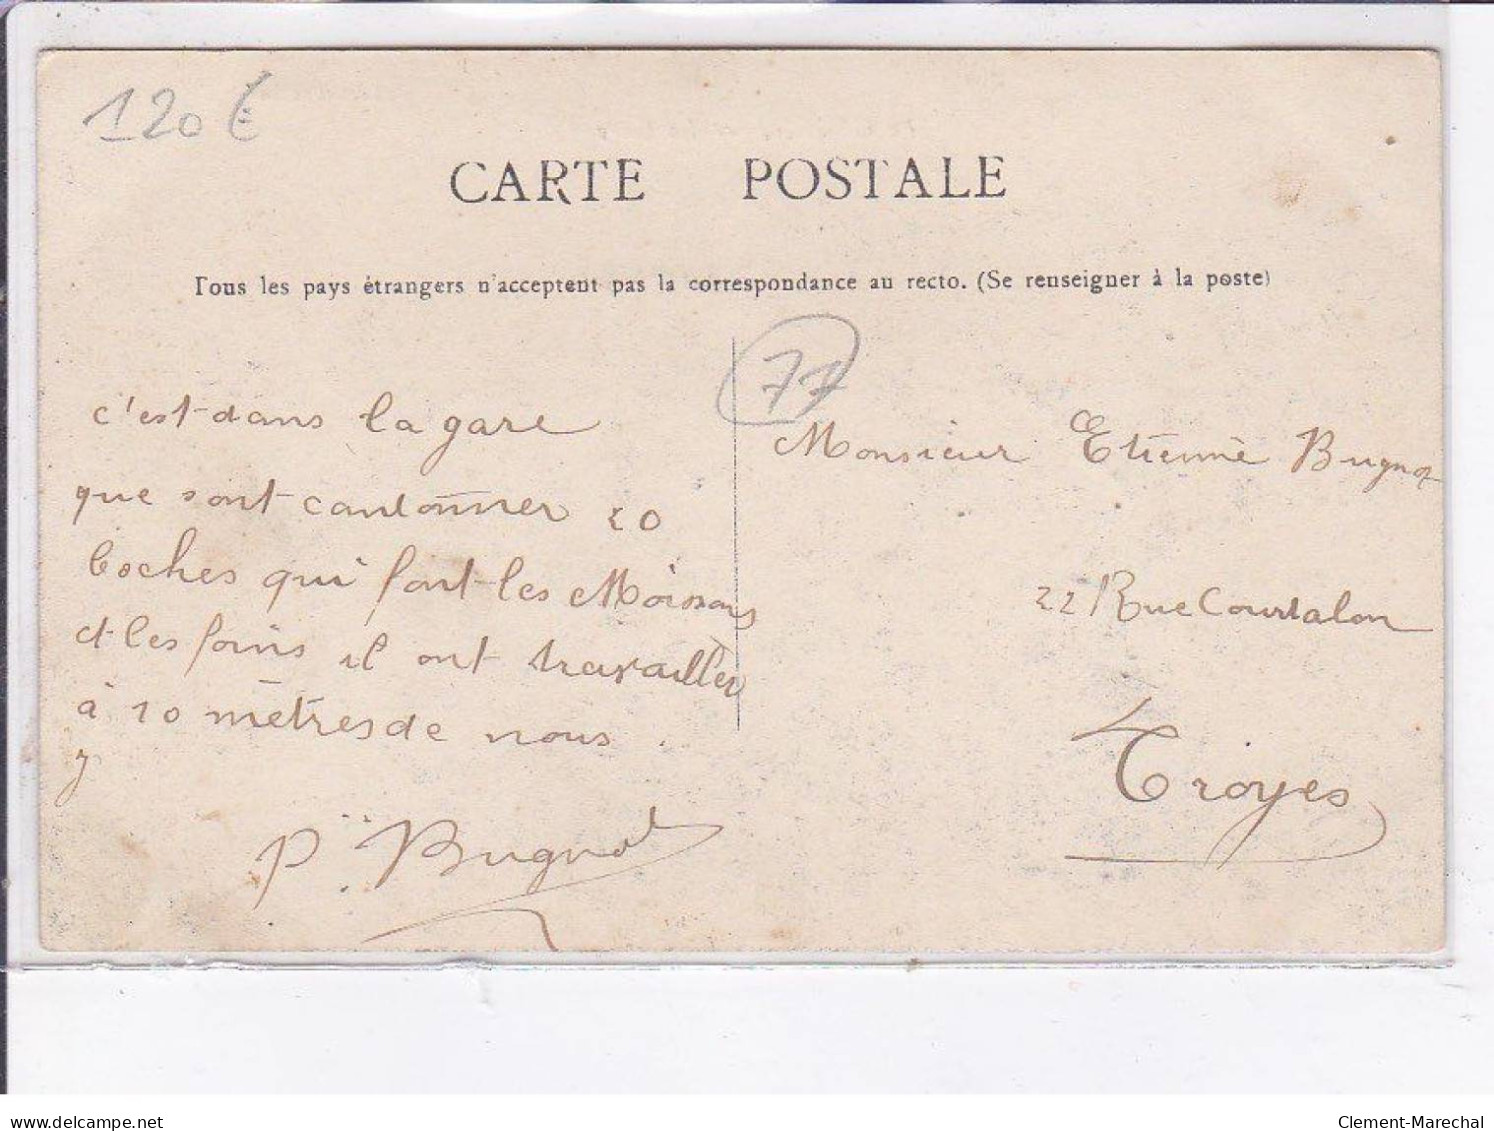 120 €
CARTE POSTALE
Tous les pays étrangers n'acceptent pas la correspondance au recto. (Se renseigner à la poste)
77
c'est dans la gare
que sont cantonner 20
boches qui font les Moissons
et les foins il ont travailler
à 10 mètres de nous.
P. Bugnot
Monsieur Etienne Bugnot
22 Rue Courtalon
Troyes
delcampe.net
Clement-Marechal